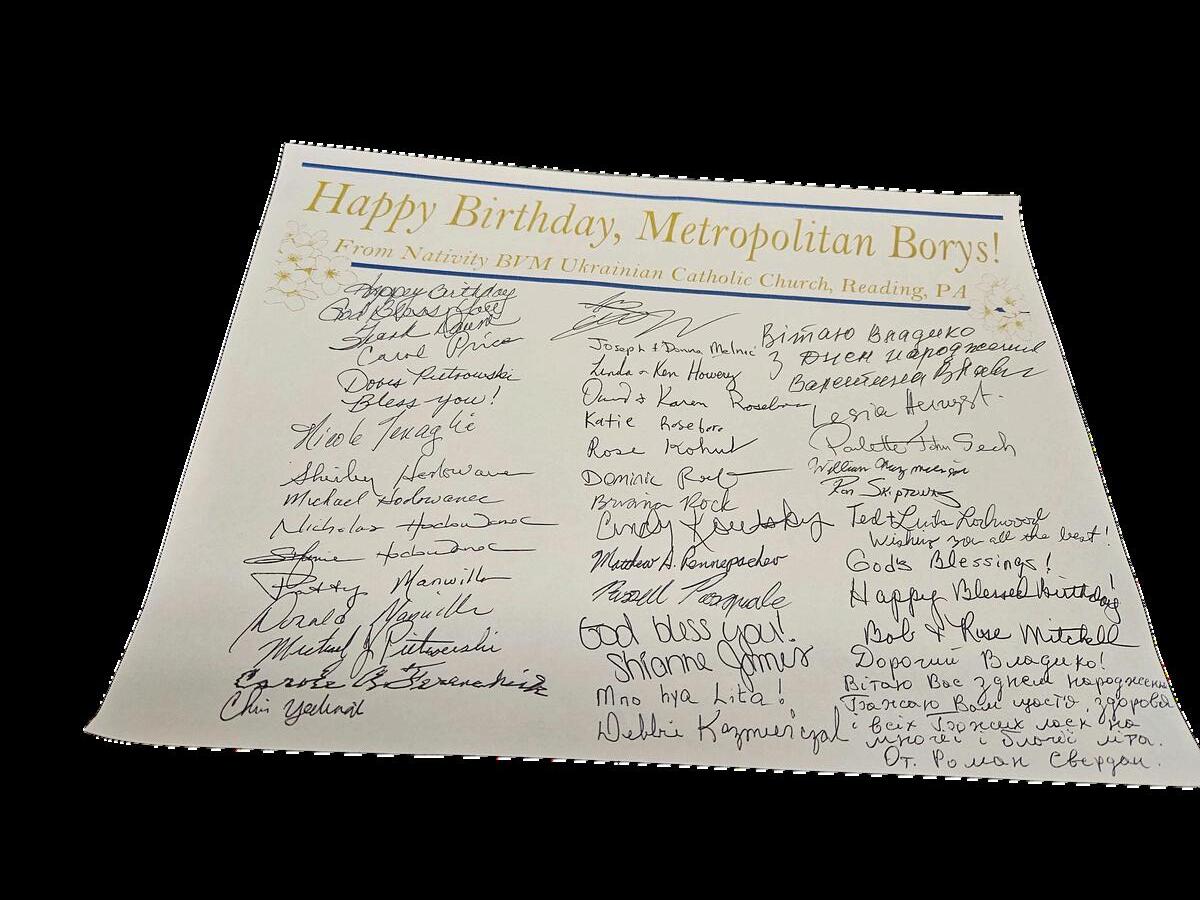 Happy Birthday, Metropolitan Borys!
From Nativity BVM Ukrainian Catholic Church, Reading, PA
Happy Birthday
God Bless You
Carol Price
Doris Pietrowski
Bless you!
Nicole Tenaglie
Shirley Hodowanec
Michael Hodowanec
Nicholas Hodowanec
Hodowanec
Patty Manwiller
Donald Manwiller
Michael J Pietrowski
Carole A.
Chris
Joseph & Donna Melnic
Linda & Ken Howery
David & Karen Roseboro
Katie Roseboro
Rose Kohut
Dominic Rock
Brianna Rock
Cindy Koutsky
Matthew A. Pennepacker
Russell Pasquale
God bless you!
Shianna James
Mno hya Lita!
Debbie Kazmierczak
Вітаю Владико
З Днем народження
Валентина
Lesia
Paulette John Sech
William
Ron
Ted & Luba Lockwood
Wishing you all the best!
God's Blessings!
Happy Blessed Birthday!
Bob & Rose Mitchell
Дорогий Владико!
Вітаю Вас з днем народження
Бажаю Вам щастя, здоровя
і всіх Божих ласк на
многії і благії літа.
От. Роман Свердан.